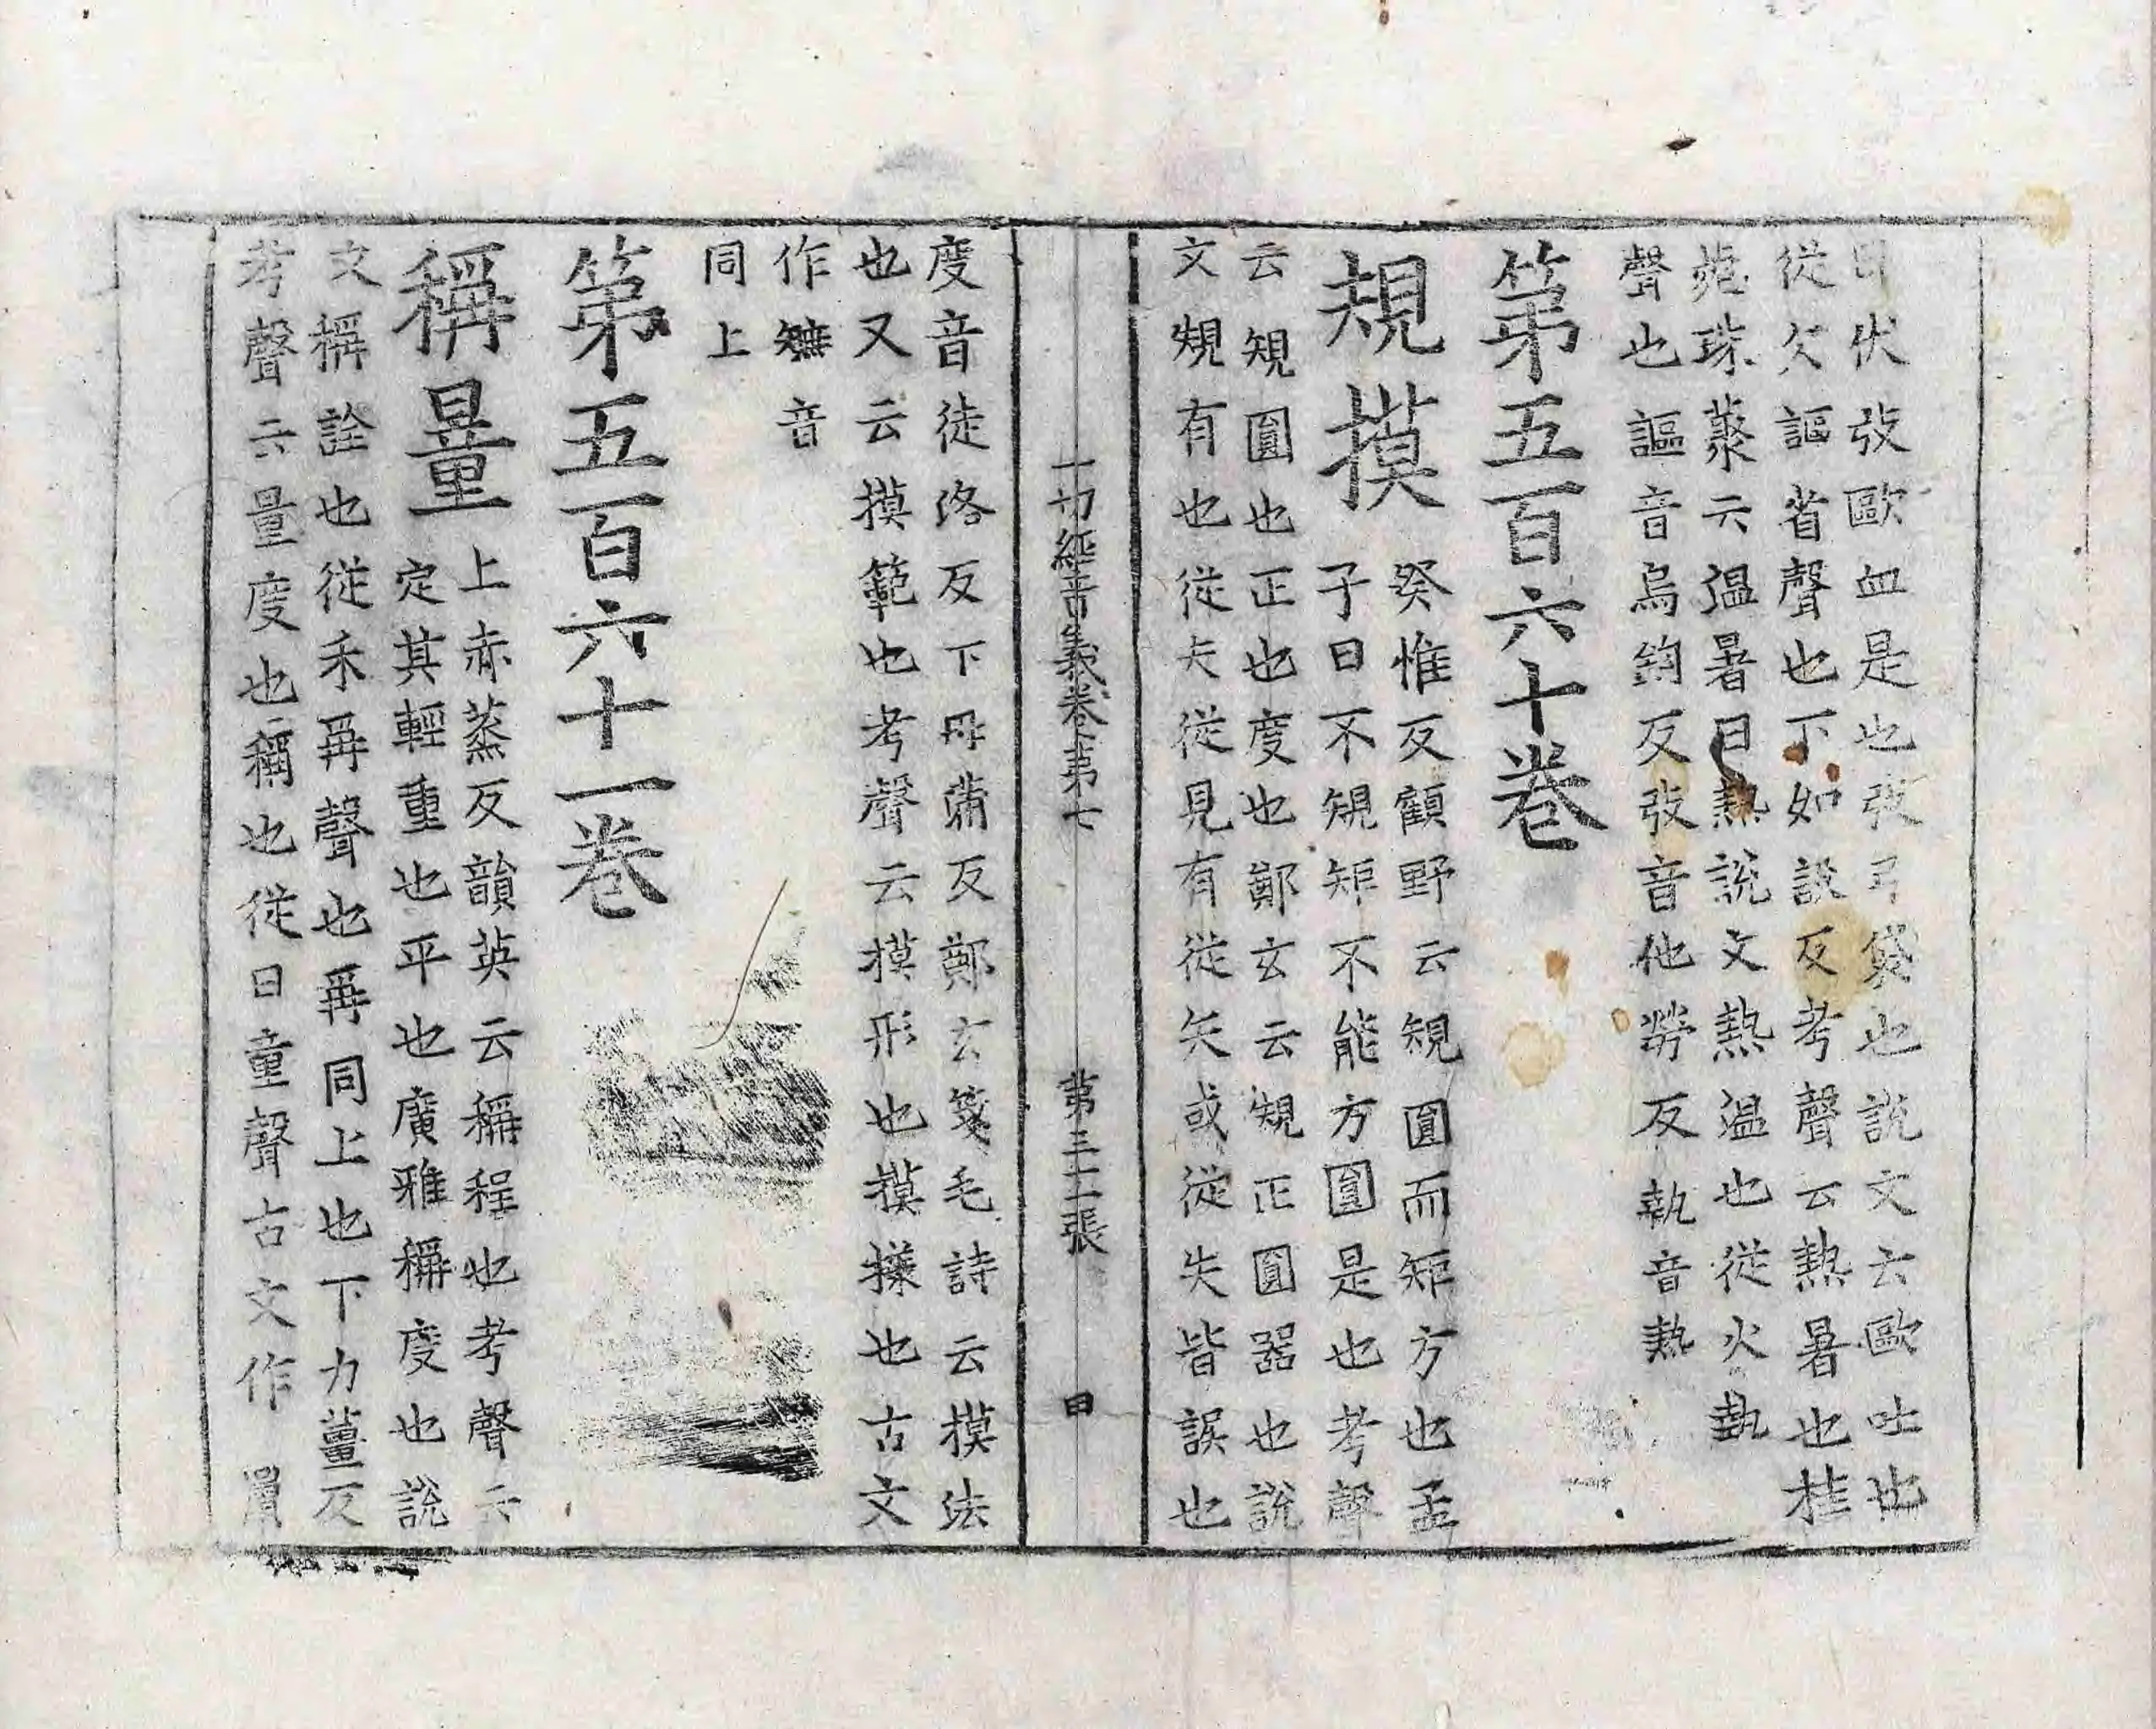 伏弢歐血是也弢弓袋也說文云歐吐也
從欠謳省聲也下如說反考聲云熱暑也桂
菀珠藂云温暑曰熱說文熱温也從火埶
聲也謳音烏鉤反弢音他勞反執音熱
第五百六十卷
規摸
癸惟反顧野云規圓而矩方也孟
子曰不規矩不能方圓是也考聲
云規圓也正也度也鄭玄云規正圓器也說
文規有也從夫從見有從矢或從失皆誤也
一切經音義卷第七 第三十一張 甲
度音徒洛反下母蒲反鄭玄箋毛詩云摸法
也又云摸範也考聲云摸形也摸㨾也古文
作㷻音
同上
第五百六十一卷
稱量
上赤蒸反韻英云稱程也考聲云
定其輕重也平也廣雅稱度也說
文稱詮也從禾爯聲也爯同上也下力薑反
考聲云量度也稱也從日童聲古文作